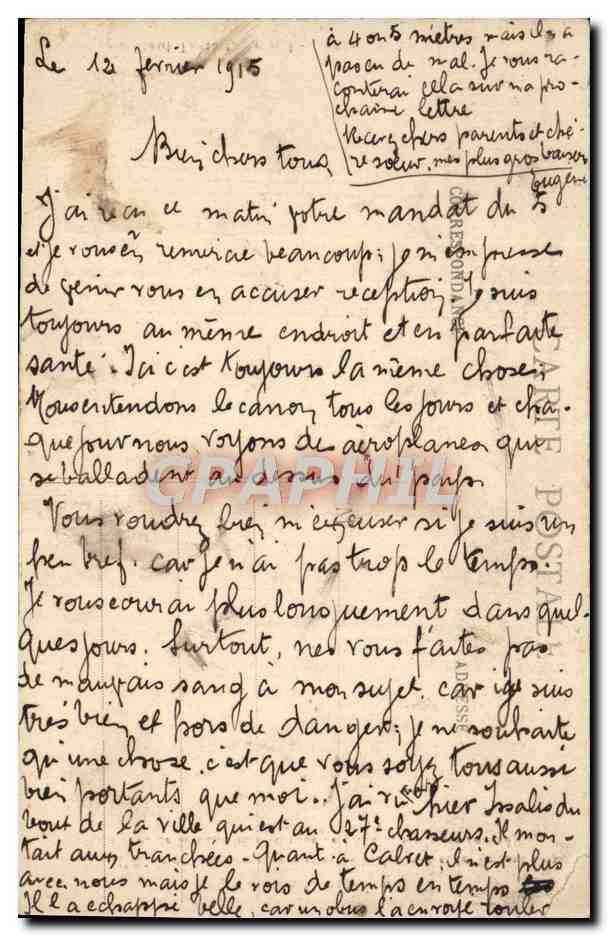 Le 12 février 1915
Bien chers tous,
J'ai reçu ce matin votre mandat du 5
et je vous en remercie beaucoup; je m'empresse
de venir vous en accuser réception. Je suis
toujours au même endroit et en parfaite
santé. Ici c'est toujours la même chose.
Nous entendons le canon tous les jours et cha-
que jour nous voyons des aéroplanes qui
se balladent au dessus du pays.
Vous voudrez bien m'excuser si je suis un
peu bref. car je n'ai pas trop le temps.
Je vous écrirai plus longuement dans quel-
ques jours. Surtout, ne vous faites pas
de mauvais sang à mon sujet, car je suis
très bien et hors de danger; je ne souhaite
qu'une chose, c'est que vous soyez tous aussi
bien portants que moi.. J'ai vu hier Issalis du
bout de la ville qui est au 27e chasseurs. Il mon-
tait aux tranchées. Quant à Calvet, il n'est plus
avec nous mais je le vois de temps en temps
Il l'a échappé belle, car un obus l'a envoyé rouler
à 4 ou 5 mètres mais il n'a
pas eu de mal. Je vous ra-
conterai cela sur ma pro-
chaine lettre
Recevez chers parents et chè-
re soeur, mes plus gros baisers
Eugène
CORRESPONDANCE
CARTE POSTALE
ADRESSE
CPAPHIL